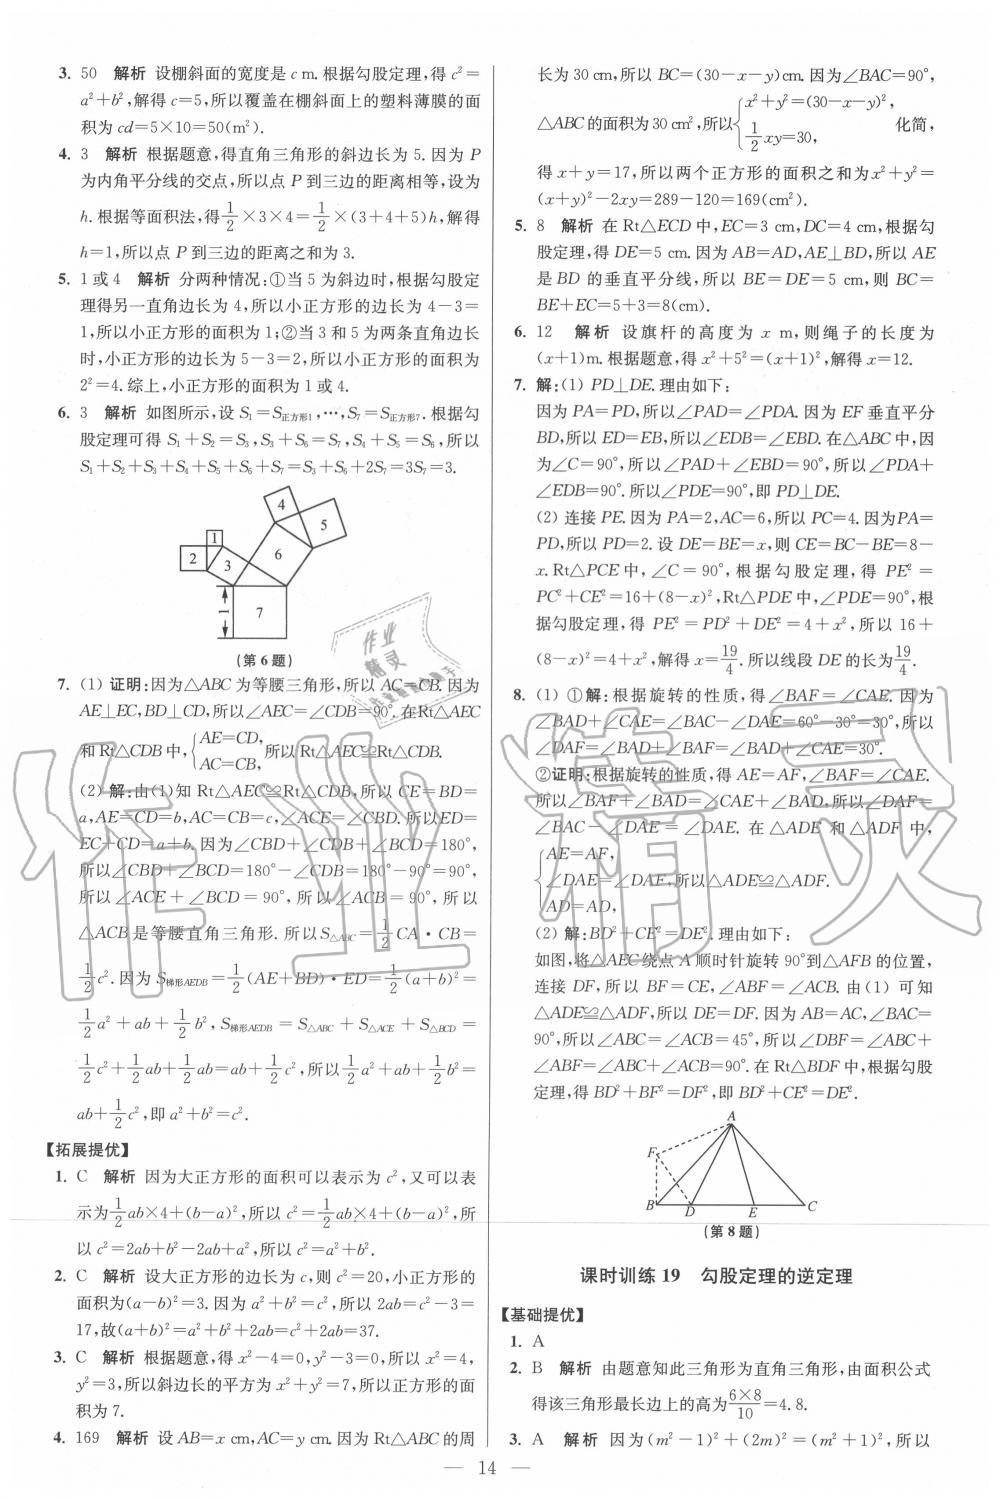 3. 50 解析 设棚斜面的宽度是 c m. 根据勾股定理,得 c²=
a²+b²,解得 c=5,所以覆盖在棚斜面上的塑料薄膜的面
积为 cd=5×10=50(m²).
4. 3 解析 根据题意,得直角三角形的斜边长为 5. 因为 P
为内角平分线的交点,所以点 P 到三边的距离相等,设为
h. 根据等面积法,得 1/2×3×4=1/2×(3+4+5)h,解得
h=1,所以点 P 到三边的距离之和为 3.
5. 1 或 4 解析 分两种情况:①当 5 为斜边时,根据勾股定
理得另一直角边长为 4,所以小正方形的边长为 4-3=
1,所以小正方形的面积为 1;②当 3 和 5 为两条直角边长
时,小正方形的边长为 5-3=2,所以小正方形的面积为
2²=4. 综上,小正方形的面积为 1 或 4.
6. 3 解析 如图所示,设 S₁=S正方形1,…,S₇=S正方形7. 根据勾
股定理可得 S₁+S₂=S₃,S₃+S₆=S₇,S₄+S₅=S₆,所以
S₁+S₂+S₃+S₄+S₅+S₆+S₇=S₃+S₆+2S₇=3S₇=3.
1 2 3 4 5 6 7 1
(第 6 题)
7. (1) 证明:因为△ABC 为等腰三角形,所以 AC=CB. 因为
AE⊥EC,BD⊥CD,所以∠AEC=∠CDB=90°. 在Rt△AEC
和 Rt△CDB 中,{AE=CD, AC=CB, 所以 Rt△AEC≌Rt△CDB.
(2) 解:由(1)知 Rt△AEC≌Rt△CDB,所以 CE=BD=
a,AE=CD=b,AC=CB=c,∠ACE=∠CBD. 所以ED=
EC+CD=a+b. 因为∠CBD+∠CDB+∠BCD=180°,
所以∠CBD+∠BCD=180°-∠CDB=180°-90°=90°,
所以∠ACE+∠BCD=90°,所以∠ACB=90°,所以
△ACB 是等腰直角三角形. 所以S△ABC=1/2CA·CB=
1/2c². 因为 S梯形AEDB=1/2(AE+BD)·ED=1/2(a+b)²=
1/2a²+ab+1/2b²,S梯形AEDB=S△ABC+S△ACE+S△BCD=
1/2c²+1/2ab+1/2ab=ab+1/2c²,所以1/2a²+ab+1/2b²=
ab+1/2c²,即 a²+b²=c².
【拓展提优】
1. C 解析 因为大正方形的面积可以表示为 c²,又可以表
示为1/2ab×4+(b-a)²,所以 c²=1/2ab×4+(b-a)²,所
以 c²=2ab+b²-2ab+a²,所以 c²=a²+b².
2. C 解析 设大正方形的边长为 c,则 c²=20,小正方形的
面积为(a-b)²=3. 因为 a²+b²=c²,所以 2ab=c²-3=
17,故(a+b)²=a²+b²+2ab=c²+2ab=37.
3. C 解析 根据题意,得 x²-4=0,y²-3=0,所以 x²=4,
y²=3,所以斜边长的平方为 x²+y²=7,所以正方形的面
积为 7.
4. 169 解析 设 AB=x cm,AC=y cm. 因为 Rt△ABC 的周
长为 30 cm,所以 BC=(30-x-y)cm. 因为∠BAC=90°,
△ABC 的面积为 30 cm²,所以{x²+y²=(30-x-y)², 1/2xy=30, 化简,
得 x+y=17,所以两个正方形的面积之和为 x²+y²=
(x+y)²-2xy=289-120=169(cm²).
5. 8 解析 在 Rt△ECD 中,EC=3 cm,DC=4 cm,根据勾
股定理,得 DE=5 cm. 因为 AB=AD,AE⊥BD,所以 AE
是 BD 的垂直平分线,所以 BE=DE=5 cm,则 BC=
BE+EC=5+3=8(cm).
6. 12 解析 设旗杆的高度为 x m,则绳子的长度为
(x+1)m. 根据题意,得 x²+5²=(x+1)²,解得 x=12.
7. 解:(1) PD⊥DE. 理由如下:
因为 PA=PD,所以∠PAD=∠PDA. 因为 EF 垂直平分
BD,所以 ED=EB,所以∠EDB=∠EBD. 在△ABC 中,因
为∠C=90°,所以∠PAD+∠EBD=90°,所以∠PDA+
∠EDB=90°. 所以∠PDE=90°,即 PD⊥DE.
(2) 连接 PE. 因为 PA=2,AC=6,所以 PC=4. 因为PA=
PD,所以 PD=2. 设 DE=BE=x,则 CE=BC-BE=8-
x. Rt△PCE 中,∠C=90°,根据勾股定理,得 PE²=
PC²+CE²=16+(8-x)²,Rt△PDE 中,∠PDE=90°,根
据勾股定理,得 PE²=PD²+DE²=4+x²,所以 16+
(8-x)²=4+x²,解得 x=19/4. 所以线段 DE 的长为19/4.
8. (1) ①解:根据旋转的性质,得∠BAF=∠CAE. 因为
∠BAD+∠CAE=∠BAC-∠DAE=60°-30°=30°,所以
∠DAF=∠BAD+∠BAF=∠BAD+∠CAE=30°.
②证明:根据旋转的性质,得 AE=AF,∠BAF=∠CAE.
所以∠BAF+∠BAD=∠CAE+∠BAD,所以∠DAF=
∠BAC-∠DAE=∠DAE. 在△ADE 和△ADF 中,
{AE=AF,
∠DAE=∠DAF,所以△ADE≌△ADF.
AD=AD,
(2) 解:BD²+CE²=DE². 理由如下:
如图,将△AEC 绕点 A 顺时针旋转 90°到△AFB 的位置,
连接 DF,所以 BF=CE,∠ABF=∠ACB. 由(1)可知
△ADE≌△ADF,所以 DE=DF. 因为 AB=AC,∠BAC=
90°,所以∠ABC=∠ACB=45°,所以∠DBF=∠ABC+
∠ABF=∠ABC+∠ACB=90°. 在 Rt△BDF 中,根据勾股
定理,得 BD²+BF²=DF²,即 BD²+CE²=DE².
A F B D E C
(第 8 题)
课时训练 19 勾股定理的逆定理
【基础提优】
1. A
2. B 解析 由题意知此三角形为直角三角形,由面积公式
得该三角形最长边上的高为6×8/10=4.8.
3. A 解析 因为(m²-1)²+(2m)²=(m²+1)²,所以
— 14 —
作业精灵